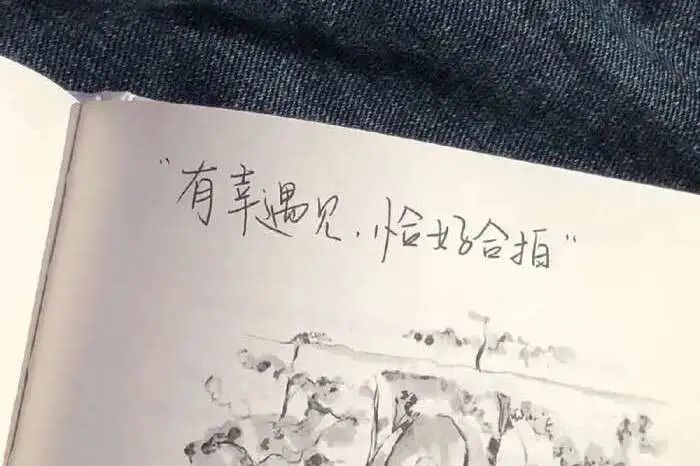 "有幸遇见,恰好合拍"